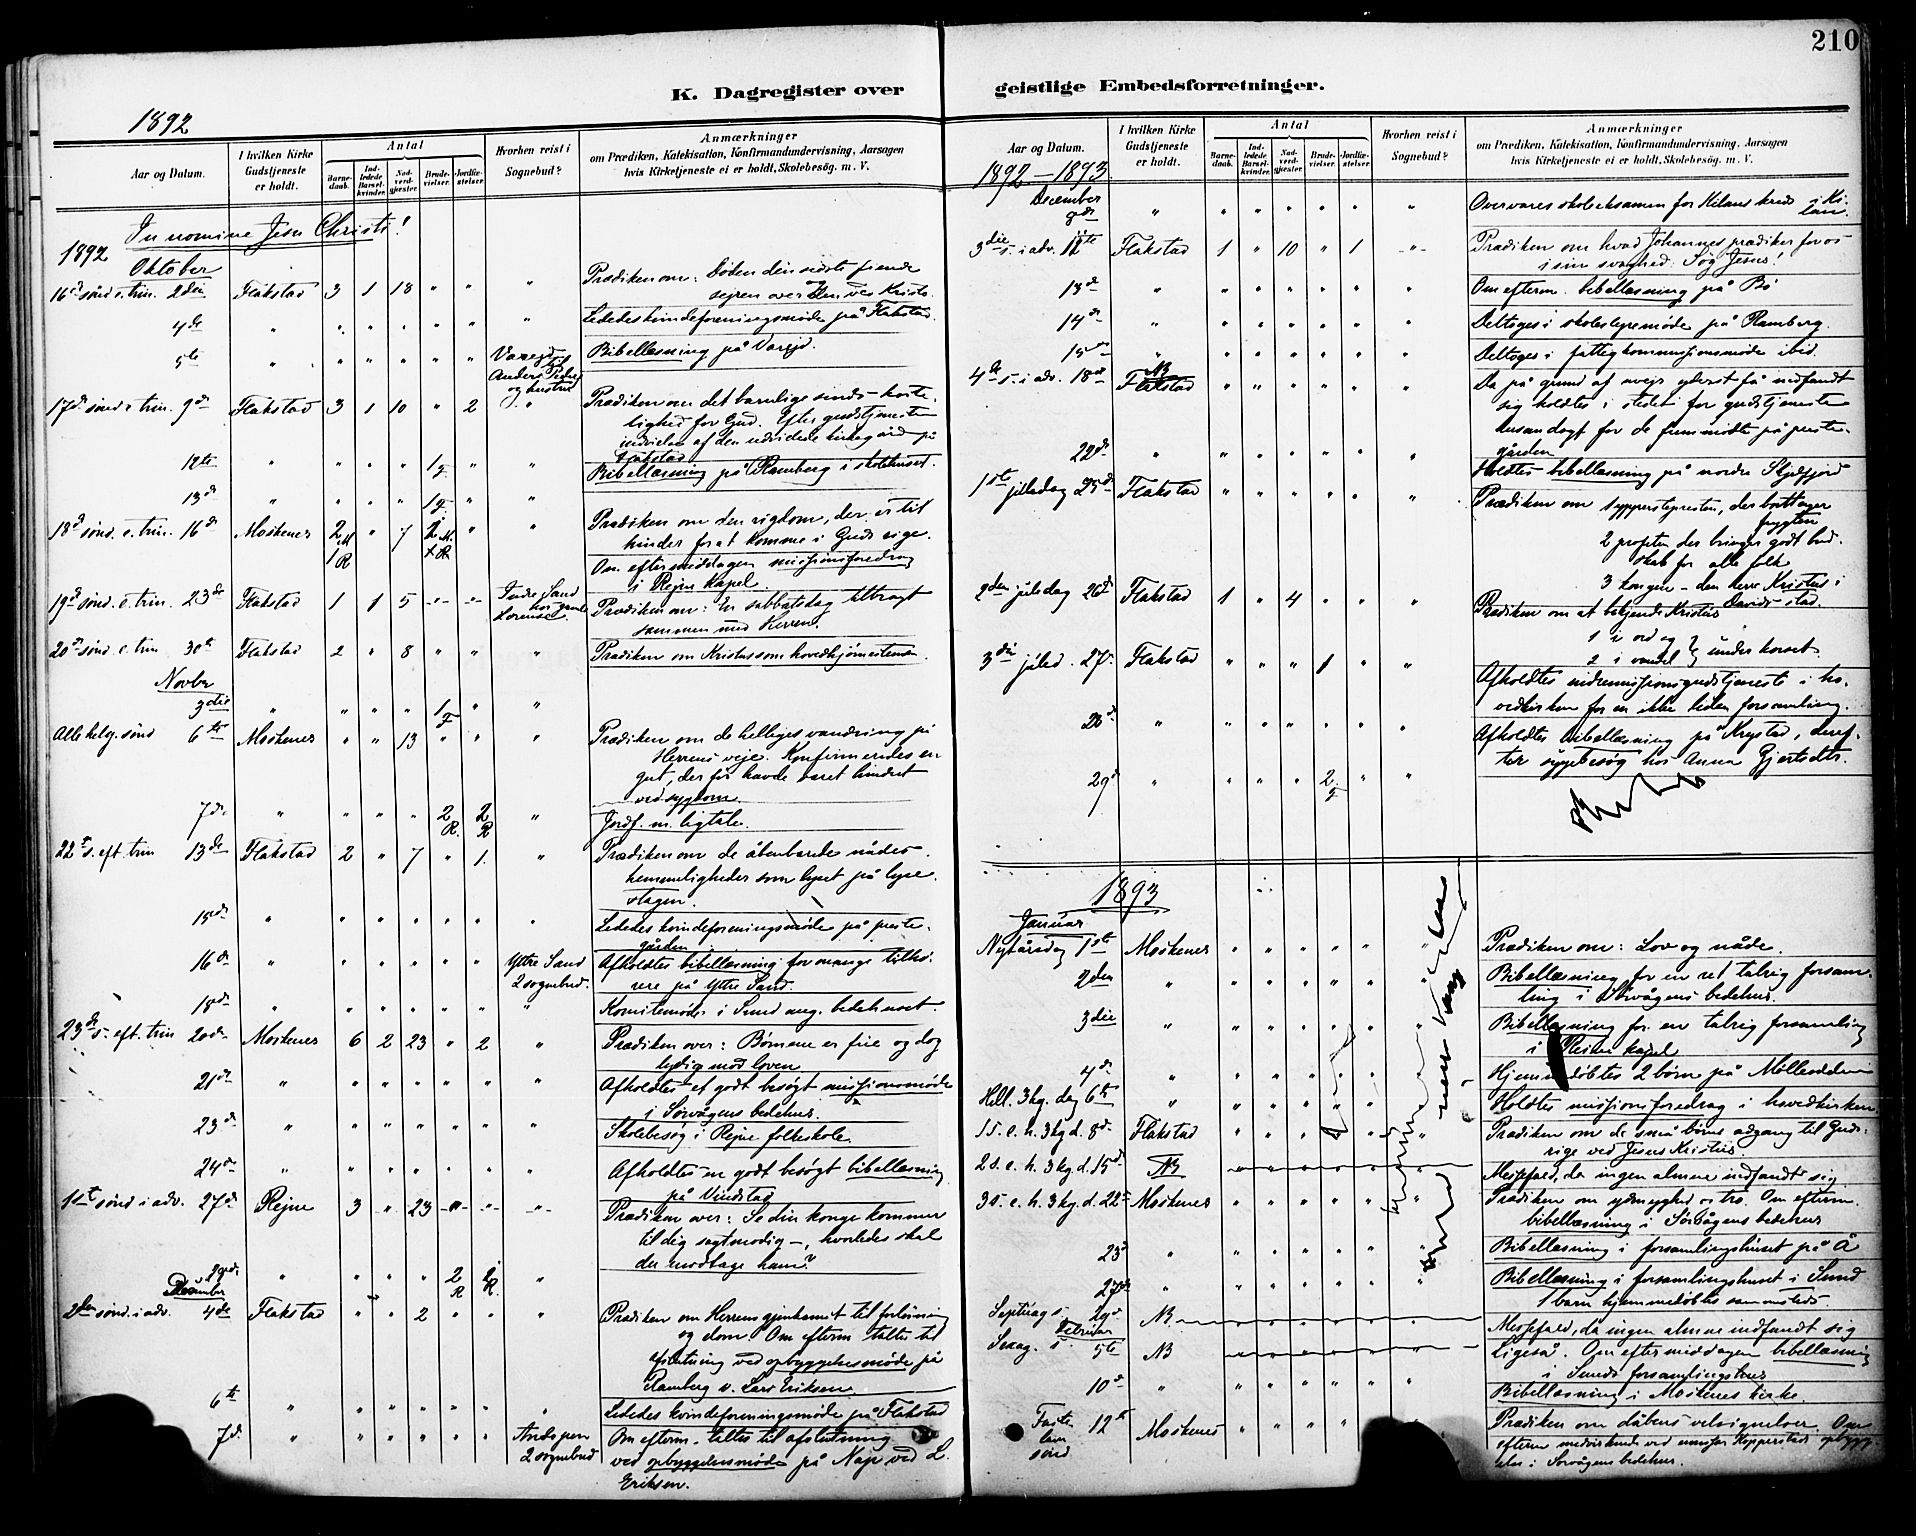 210
K. Dagregister over
geistlige Embedsforretninger.
1892
Aar og Datum.
I hvilken Kirke Gudstjeneste er holdt.
Antal
Barnedaab.
Indledede Barselkvinder.
Nadverdgjester.
Brudevielser.
Jordfæstelser.
Hvorhen reist i Sognebud?
Anmærkninger
om Prædiken, Katekisation, Konfirmandundervisning, Aarsagen
hvis Kirketjeneste ei er holdt, Skolebesög. m. V.
In nomine Jesu Christi!
1892
Oktober
16d sönd e. trin. 2den Flakstad 3 1 18 " " " Prædiken om: Döden den sidste fiende
sejren over den ved Kristo.
4de " " " " " " " Lededes kvindeforeningsmöde på Flakstad.
5te " " " " " " Vareid
Anders
og hustru
Bibellæsning på Vareid.
17d sönd e trin. 9de Flakstad 3 1 10 " 2 " Prædiken om det barnlige sinds koste-
lighed for Gud. Efter gudstjeneste
indvielse af den udvidede kirkegård på
Flakstad
12te " " " " 1 F " " Bibellæsning på Ramberg i skolehuset.
13de " " " " 1 F " "
18d sönd. e. trin. 16de Moskenes 2 M 1 R " 7 " " Prædiken om den rigdom, der er til
hinder for at komme i Guds rige.
Om eftermiddagen missionsforedrag
i Rejne kapel.
19d sönd. e. trin. 23de Flakstad 1 1 5 " " Indre Sand
Prædiken om: En sabbatsdag tilbragt
sammen med Herren.
20d sönd e. trin 30te Flakstad 2 " 8 " " " Prædiken om Kristus som hovedhjörnestenen
Novbr
3die " " " " 1 F " "
Alle helg. sönd 6te Moskenes " " 13 " " " Prædiken om de helliges vandring på
Herrens veje. Konfirmeredes en
gut, der för havde været hindret
ved sygdom.
7de " " " " 2 R. 2 R " Jordf. m. ligtale.
22d s. eft. trin 13de Flakstad 2 " 7 " 1. " Prædiken om de åbenbarede nådes-
hemmeligheder som lyset på lyse-
stagen.
15de " " " " " " " Lededes kvindeforeningsmöde på preste-
gården
16de " " " " " " Yttre Sand
2 sognebud.
Afholdtes bibellæsning for mange tilhö-
rere på Yttre Sand.
18de " " " " " " " Komitemöde i Sund ang. bedehuset.
23de s. eft. trin 20de Moskenes 6 2 23 " 2 " Prædiken over: Börnene er frie og dog
lydige mod loven
21de " " " " " " " Afholdtes et godt besögt missionsmöde
i Sörvågens bedehus.
23de " " " " " " " Skolebesög i Rejne folkeskole.
24de " " " " " " " Afholdtes en godt besögt bibellæsning
på Vindstad
1ste sönd i adv. 27de Rejne 3 " 23 " " " Prædiken over: Se din konge kommer
til dig sagtmodig –, hvorledes skal
du modtage ham?
29de " " " " 2 R 2 R. "
December
2den sönd. i adv. 4de Flakstad " " 2 " " " Prædiken om Herrens gjenkomst til forlösning
og dom. Om efterm. taltes til
afslutning ved opbyggelsesmöde på
Ramberg v. Lars Eriksen.
6te " " " " " " " Lededes kvindeforeningsmöde på Flakstad
7de " " " " " "
2 sognebud
Om efterm. taltes til afslutning
ved opbyggelsesmöde på Nap ved L.
Eriksen.
Aar og Datum.
I hvilken Kirke Gudstjeneste er holdt.
Antal
Barnedaab.
Indledede Barselkvinder.
Nadverdgjester.
Brudevielser.
Jordfæstelser.
Hvorhen reist i Sognebud?
Anmærkninger
om Prædiken, Katekisation, Konfirmandundervisning, Aarsagen
hvis Kirketjeneste ei er holdt, Skolebesög. m. V.
1892 – 1893
December
9de " " " " " " " Overvares skoleeksamen for Kilans kreds i Ki-
lan.
3die s. i adv. 11te Flakstad 1 " 10 " 1 " Prædiken om hvad Johannes prædiker for os
i sin svaghed: Søg Jesus!
13de " " " " " " " Om efterm. bibellæsning på Bö
14de " " " " " " " Deltoges i skolestyremöde på Ramberg.
15de " " " " " " " Deltoges i fattigkommissionsmöde ibid.
4de s. i adv. 18de NB Flakstad " " " " " " Da på grund af vejr yderst få indfandt
sig holdtes i stedet for gudstjeneste
husandagt for de fremmödte på preste-
gården
22de " " " " " " " Holdtes bibellæsning på nordre Skjelfjord
1ste juledag 25de Flakstad " " " " " " Prædiken om 1 ypperstepresten, der borttager
frygten
2 profeten der bringer godt bud-
skab for alle folk
3 kongen – den herre Kristus i
Davids stad.
2den juledag 26de Flakstad 1 " 4 " " " Prædiken om at bekjende Kristus
1 i ord og
2 i vandel } under korset.
3die juled. 27de Flakstad " " " 1 " " Afholdtes indremissionsgudstjeneste i ho-
vedkirken for en ikke liden forsamling.
28de " " " " " " " Afholdtes bibellæsning på Krystad, deref-
ter sygebesög hos Anna Gjertsdtr.
29de " " " " 2 F " "
1893
Januar
Nytårsdag 1ste Moskenes " " " " " " Prædiken om: Lov og nåde.
2den " " " " " " " Bibellæsning for en ret talrig forsam-
ling i Sörvågens bedehus.
3die " " " " " " " Bibellæsning for en talrig forsamling
i Reine kapel
4de " " " " " " " Hjemmedöbtes 2 börn på Mölleodden
Hell. 3 kg. dag 6te " " " " " " Holdtes missionsforedrag i hovedkirken.
1 s. e. h. 3 kg d. 8de Flakstad " " " " " " Prædiken om de små börns adgang til Guds
rige ved Jesus Kristus
2 s. e. h. 3 kg. d. 15de NB Messefald, da ingen almue indfandt sig
3 s. e. h. 3 kg. d. 22de Moskenes " " " " " " Prædiken om ydmyghed og tro. Om efterm.
bibellæsning i Sörvågens bedehus
23de " " " " " " " Bibellæsning i forsamlingshuset på Å
27de " " " " " " " Bibellæsning i forsamlingshuset i Sund
1 barn hjemmedöbtes sammesteds.
Septuag. s. 29de NB. Messefald, da ingen almue indfandt sig
Februar
Sexag. s. 5te NB Ligeså. Om eftermiddagen bibellæsning
i Sunds forsamlingshus
10de " " " " " " " Bibellæsning i Moskenes kirke.
Faste-
lavn
sönd
12te Moskenes " " " " Prædiken om dåbens velsignelser. Om
efterm medvirkende ved emissær Kopperstads opbygg-
else i Sörvågens bedehus.